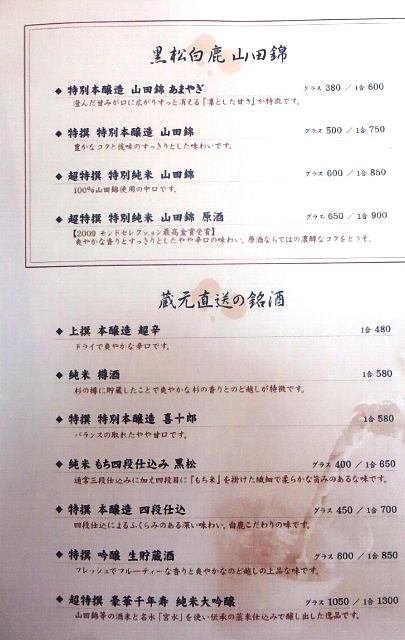 黒松白鹿 山田錦
◆ 特別本醸造 山田錦 あまやぎ グラス 380 / 1合 600
澄んだ甘みが口に広がりすっと消える「凛とした甘さ」が特徴です。
◆ 特撰 特別本醸造 山田錦 グラス 500 / 1合 750
豊かなコクと後味のすっきりとした味わいです。
◆ 超特撰 特別純米 山田錦 グラス 600 / 1合 850
100%山田錦使用の中口です。
◆ 超特撰 特別純米 山田錦 原酒 グラス 650 / 1合 900
【2009 モンドセレクション最高金賞受賞】
爽やかな香りとすっきりとしたやや辛口の味わい。原酒ならではの濃醇なコクをどうぞ。
蔵元直送の銘酒
◆ 上撰 本醸造 超辛 1合 480
ドライで爽やかな辛口です。
◆ 純米 樽酒 1合 580
杉の樽に貯蔵したことで爽やかな杉の香りとのど越しが特徴です。
◆ 特撰 特別本醸造 喜十郎 1合 580
バランスの取れたやや甘口です。
◆ 純米 もち四段仕込み 黒松 グラス 400 / 1合 650
通常三段仕込みに加え四段目に『もち米』を掛けた繊細で柔らかな旨みのあるな味です。
◆ 特撰 本醸造 四段仕込 グラス 450 / 1合 700
四段仕込によるふくらみのある深い味わい。白鹿こだわりの味です。
◆ 特撰 吟醸 生貯蔵酒 グラス 600 / 1合 850
フレッシュでフルーティーな香りと爽やかなのど越しの上品な味です。
◆ 超特撰 豪華千年寿 純米大吟醸 グラス 1050 / 1合 1300
山田錦等の酒米と名水「宮水」を使い伝承の蒸米仕込みで醸し出した逸品です。